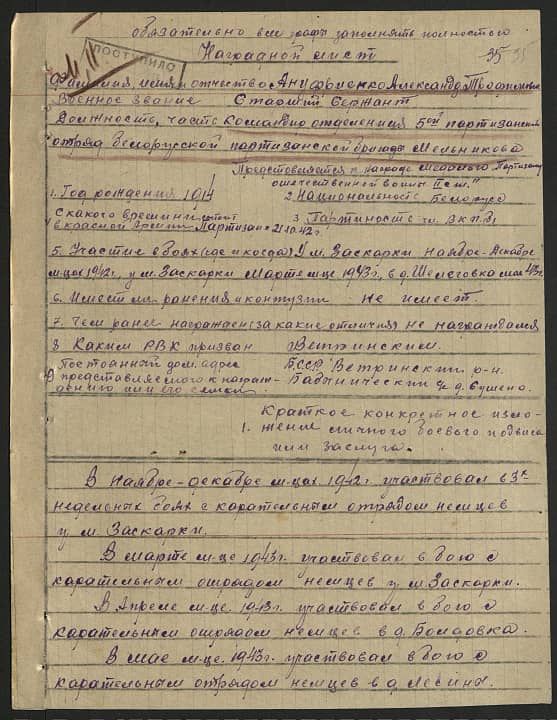 обязательно все графы заполнять полностью
Наградной лист
35 35
ПОСТУПИЛО
Фамилия, имя и отчество Ануфриенко Александр Трофимович
Военное звание Старший сержант
Должность, часть Командир отделения 5ой партизанский
отряд белорусской партизанской бригады Мельникова
Представляется к награде медалью "Партизану
отечественной войны II ст."
1. Год рождения 1914
2. Национальность Белорус
С какого времени
в красной армии Партизан с 21.10.42 г.
3. Партийность чл. ВКП/б/
5. Участие в боях (где и когда) У м. Заскарки ноябре-декабре
м-цах 1942 г., у м. Заскарки Марте м-це 1943 г., в д. Шелеговка мае 43 г.
6. Имеет ли ранения и контузии не имеет.
7. Чем ранее награжден за какие отличия не награждался
8 Каким РВК призван Ветринским.
9 Постоянный дом. адрес
представляемого к награж-
дению и его семьи.
БССР Ветринский р-н.
Бабынический с/с д. Сушено.
1. Краткое конкретное изло-
жение личного боевого подвига
или заслуг.
В Ноябре-декабре м-цах 1942 г. участвовал в 3х
недельных боях с карательным отрядом немцев
у м. Заскарки.
В марте м-це 1943 г. участвовал в бою с
карательным отрядом немцев у м. Заскарки.
В Апреле м-це. 1943 г. участвовал в бою с
карательным отрядом немцев в д.
В мае м-це. 1943 г. участвовал в бою с
карательным отрядом немцев в д. Лесины.